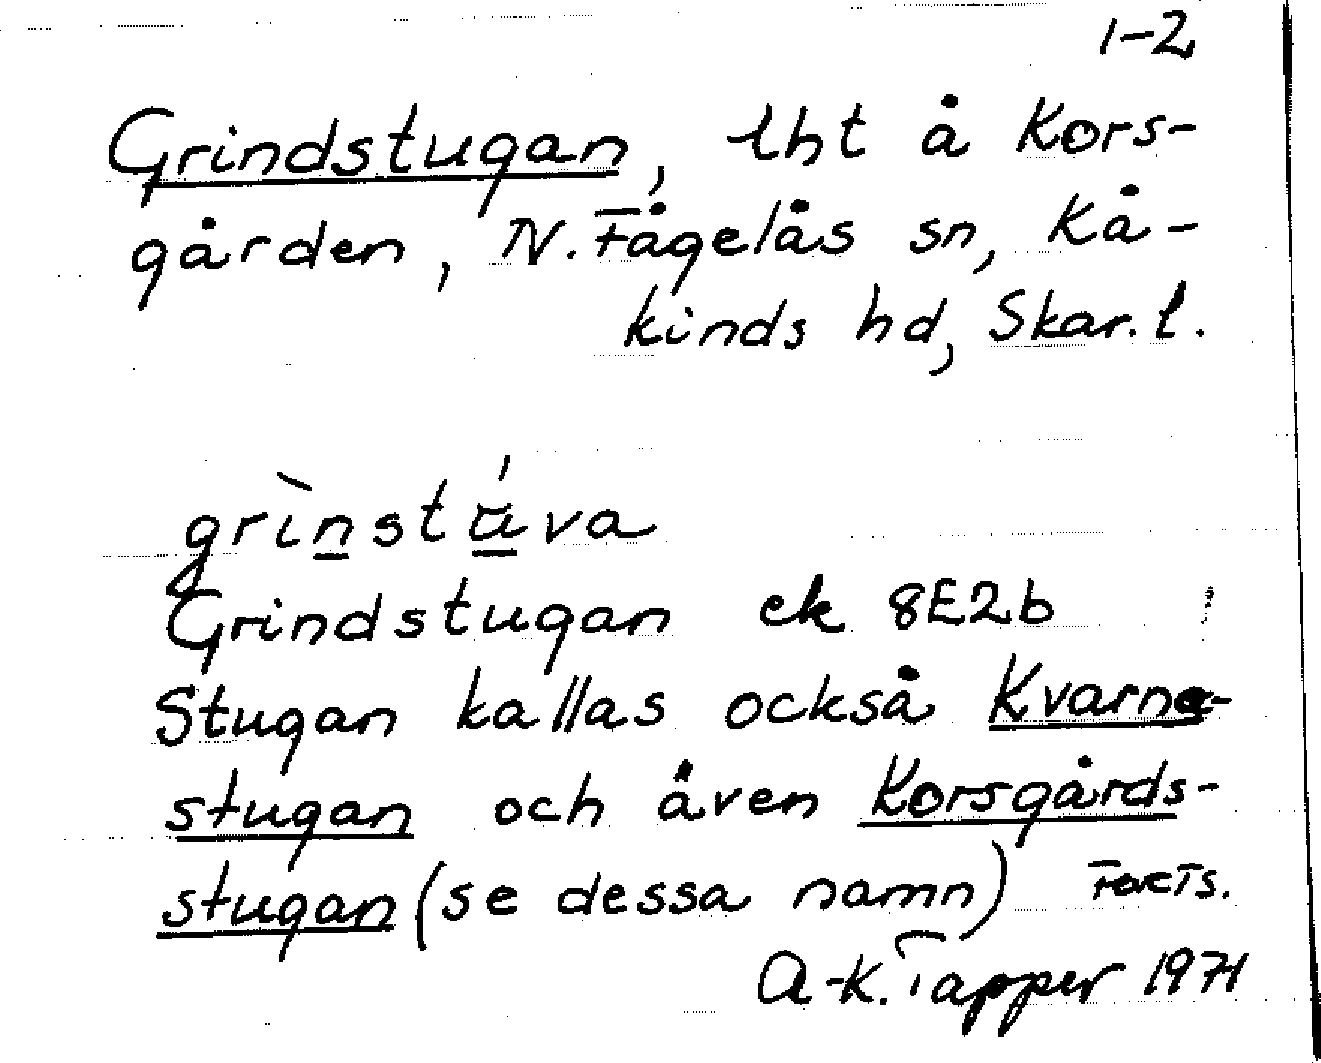 1-2
Grindstugan, lht å Kors-
gården, N. Fågelås sn, Kå-
kinds hd, Skar. l.
grìnstúva
Grindstugan ek 8E2b
Stugan kallas också Kvarna-
stugan och även Korsgårds-
stugan (se dessa namn) Forts.
A-K. Tapper 1971